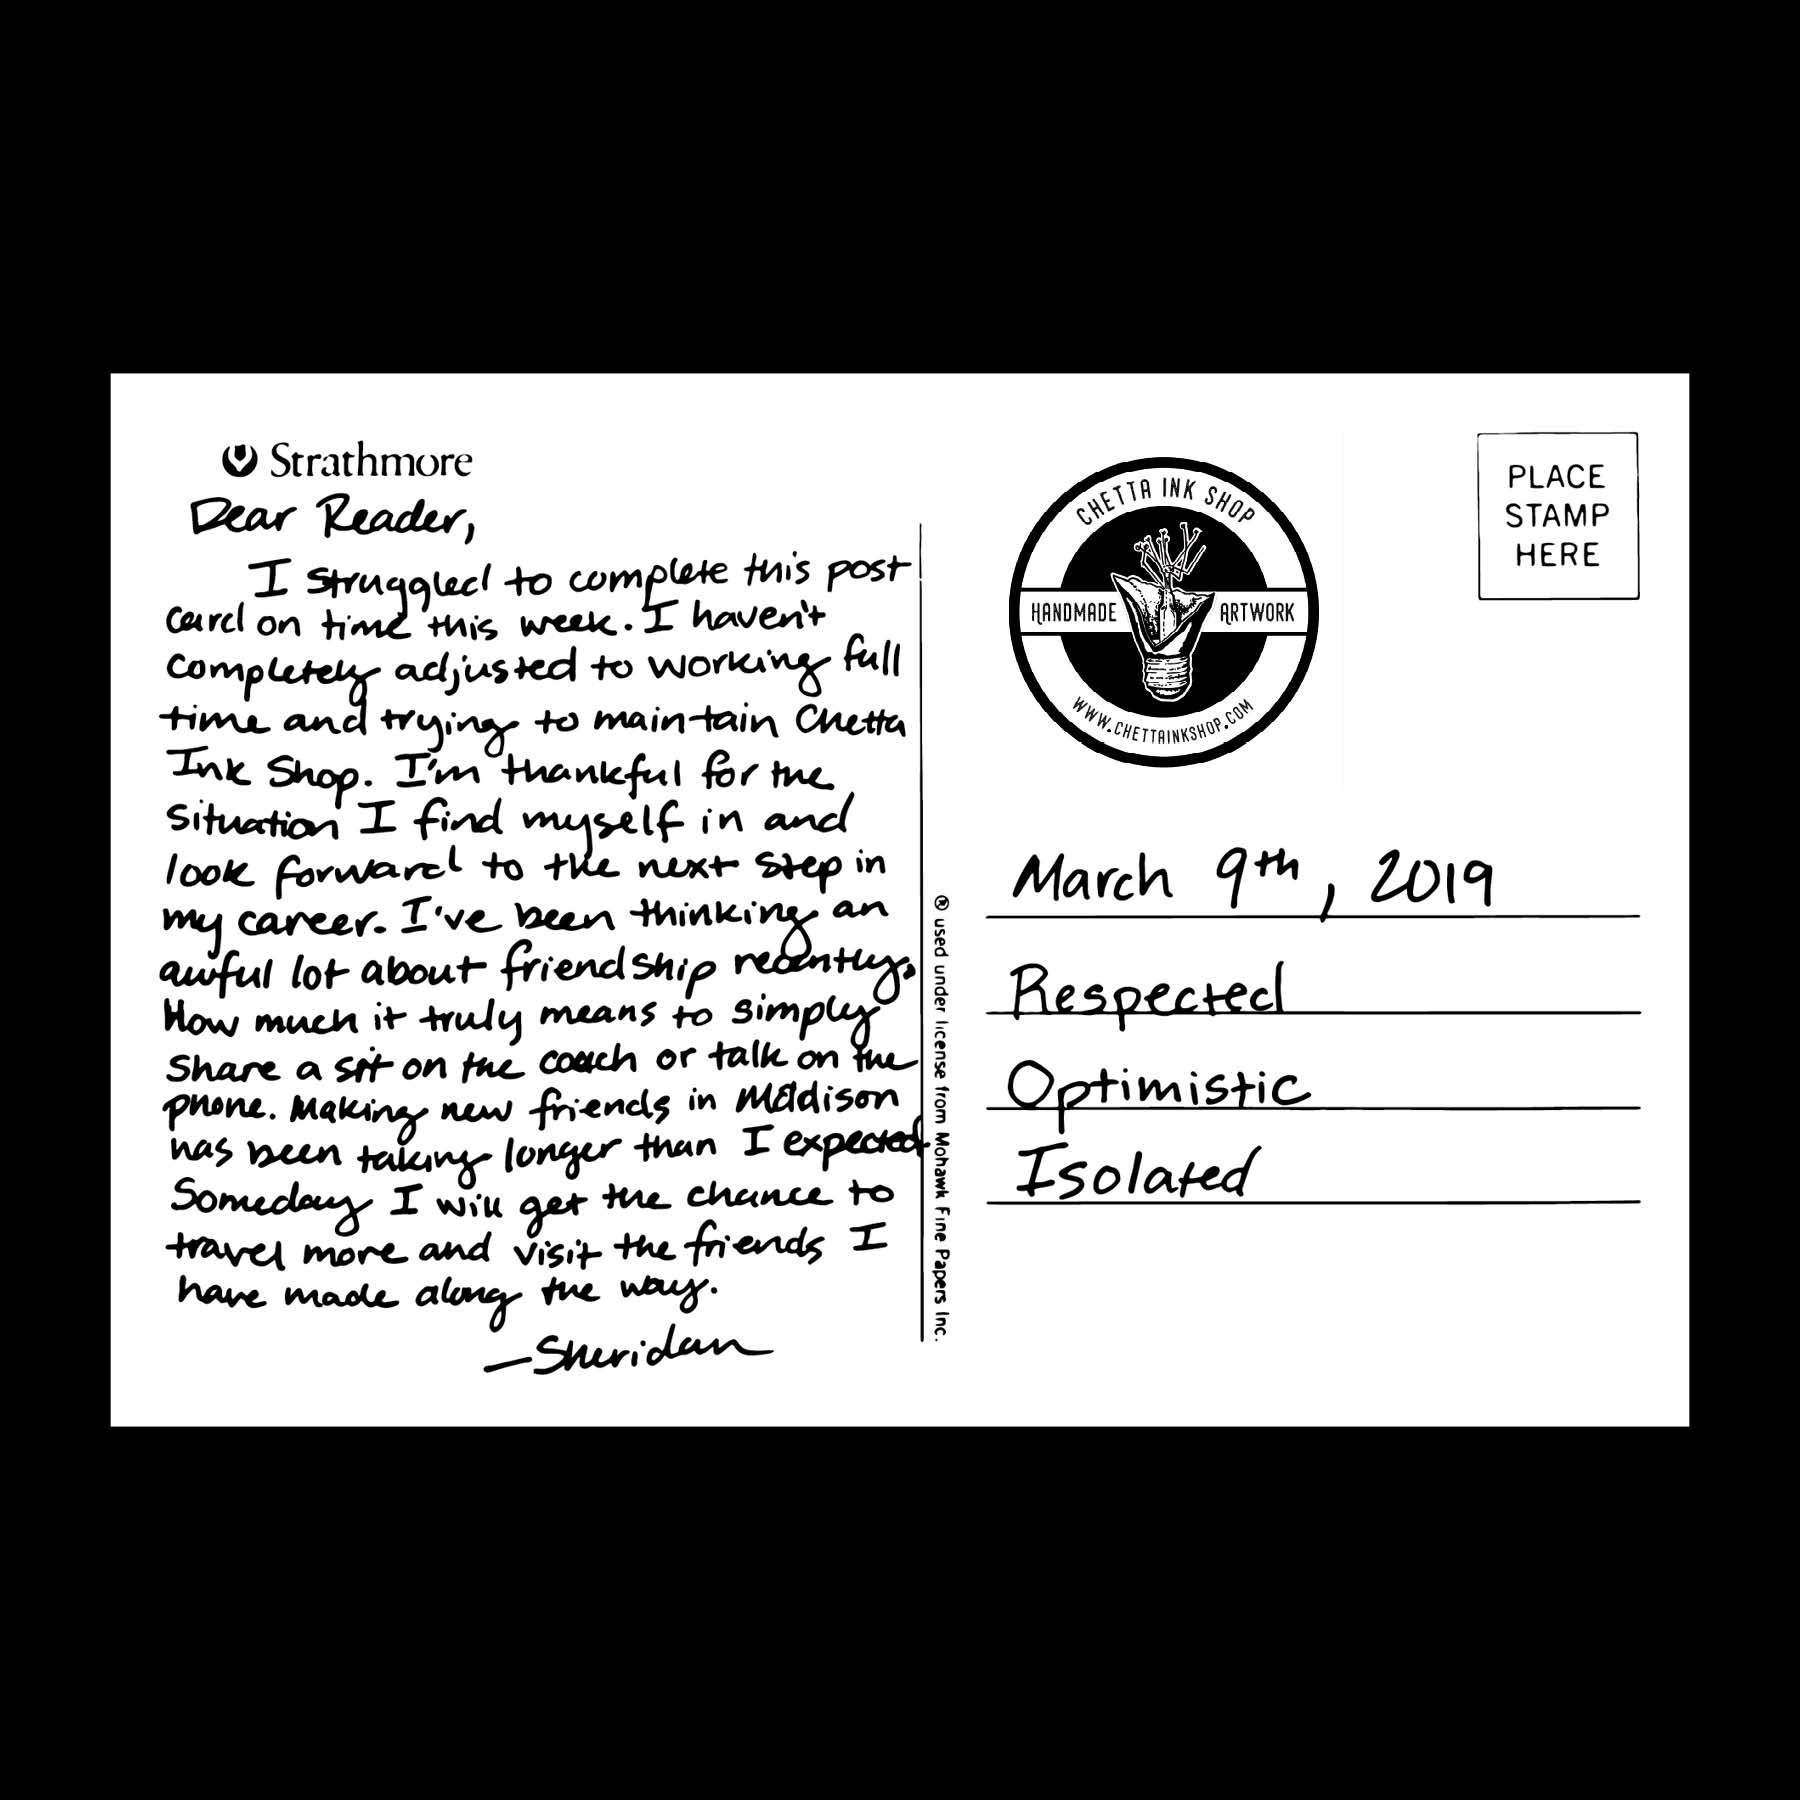 Strathmore
Dear Reader,
I struggled to complete this post
card on time this week. I haven't
completely adjusted to working full
time and trying to maintain Chetta
Ink Shop. I'm thankful for the
situation I find myself in and
look forward to the next step in
my career. I've been thinking an
awful lot about friendship recently.
How much it truly means to simply
share a sit on the couch or talk on the
phone. Making new friends in Madison
has been taking longer than I expected
Someday I will get the chance to
travel more and visit the friends I
have made along the way.
—Sheridan
® used under license from Mohawk Fine Papers Inc.
CHETTA INK SHOP
HANDMADE ARTWORK
WWW.CHETTAINKSHOP.COM
PLACE
STAMP
HERE
March 9th, 2019
Respected
Optimistic
Isolated